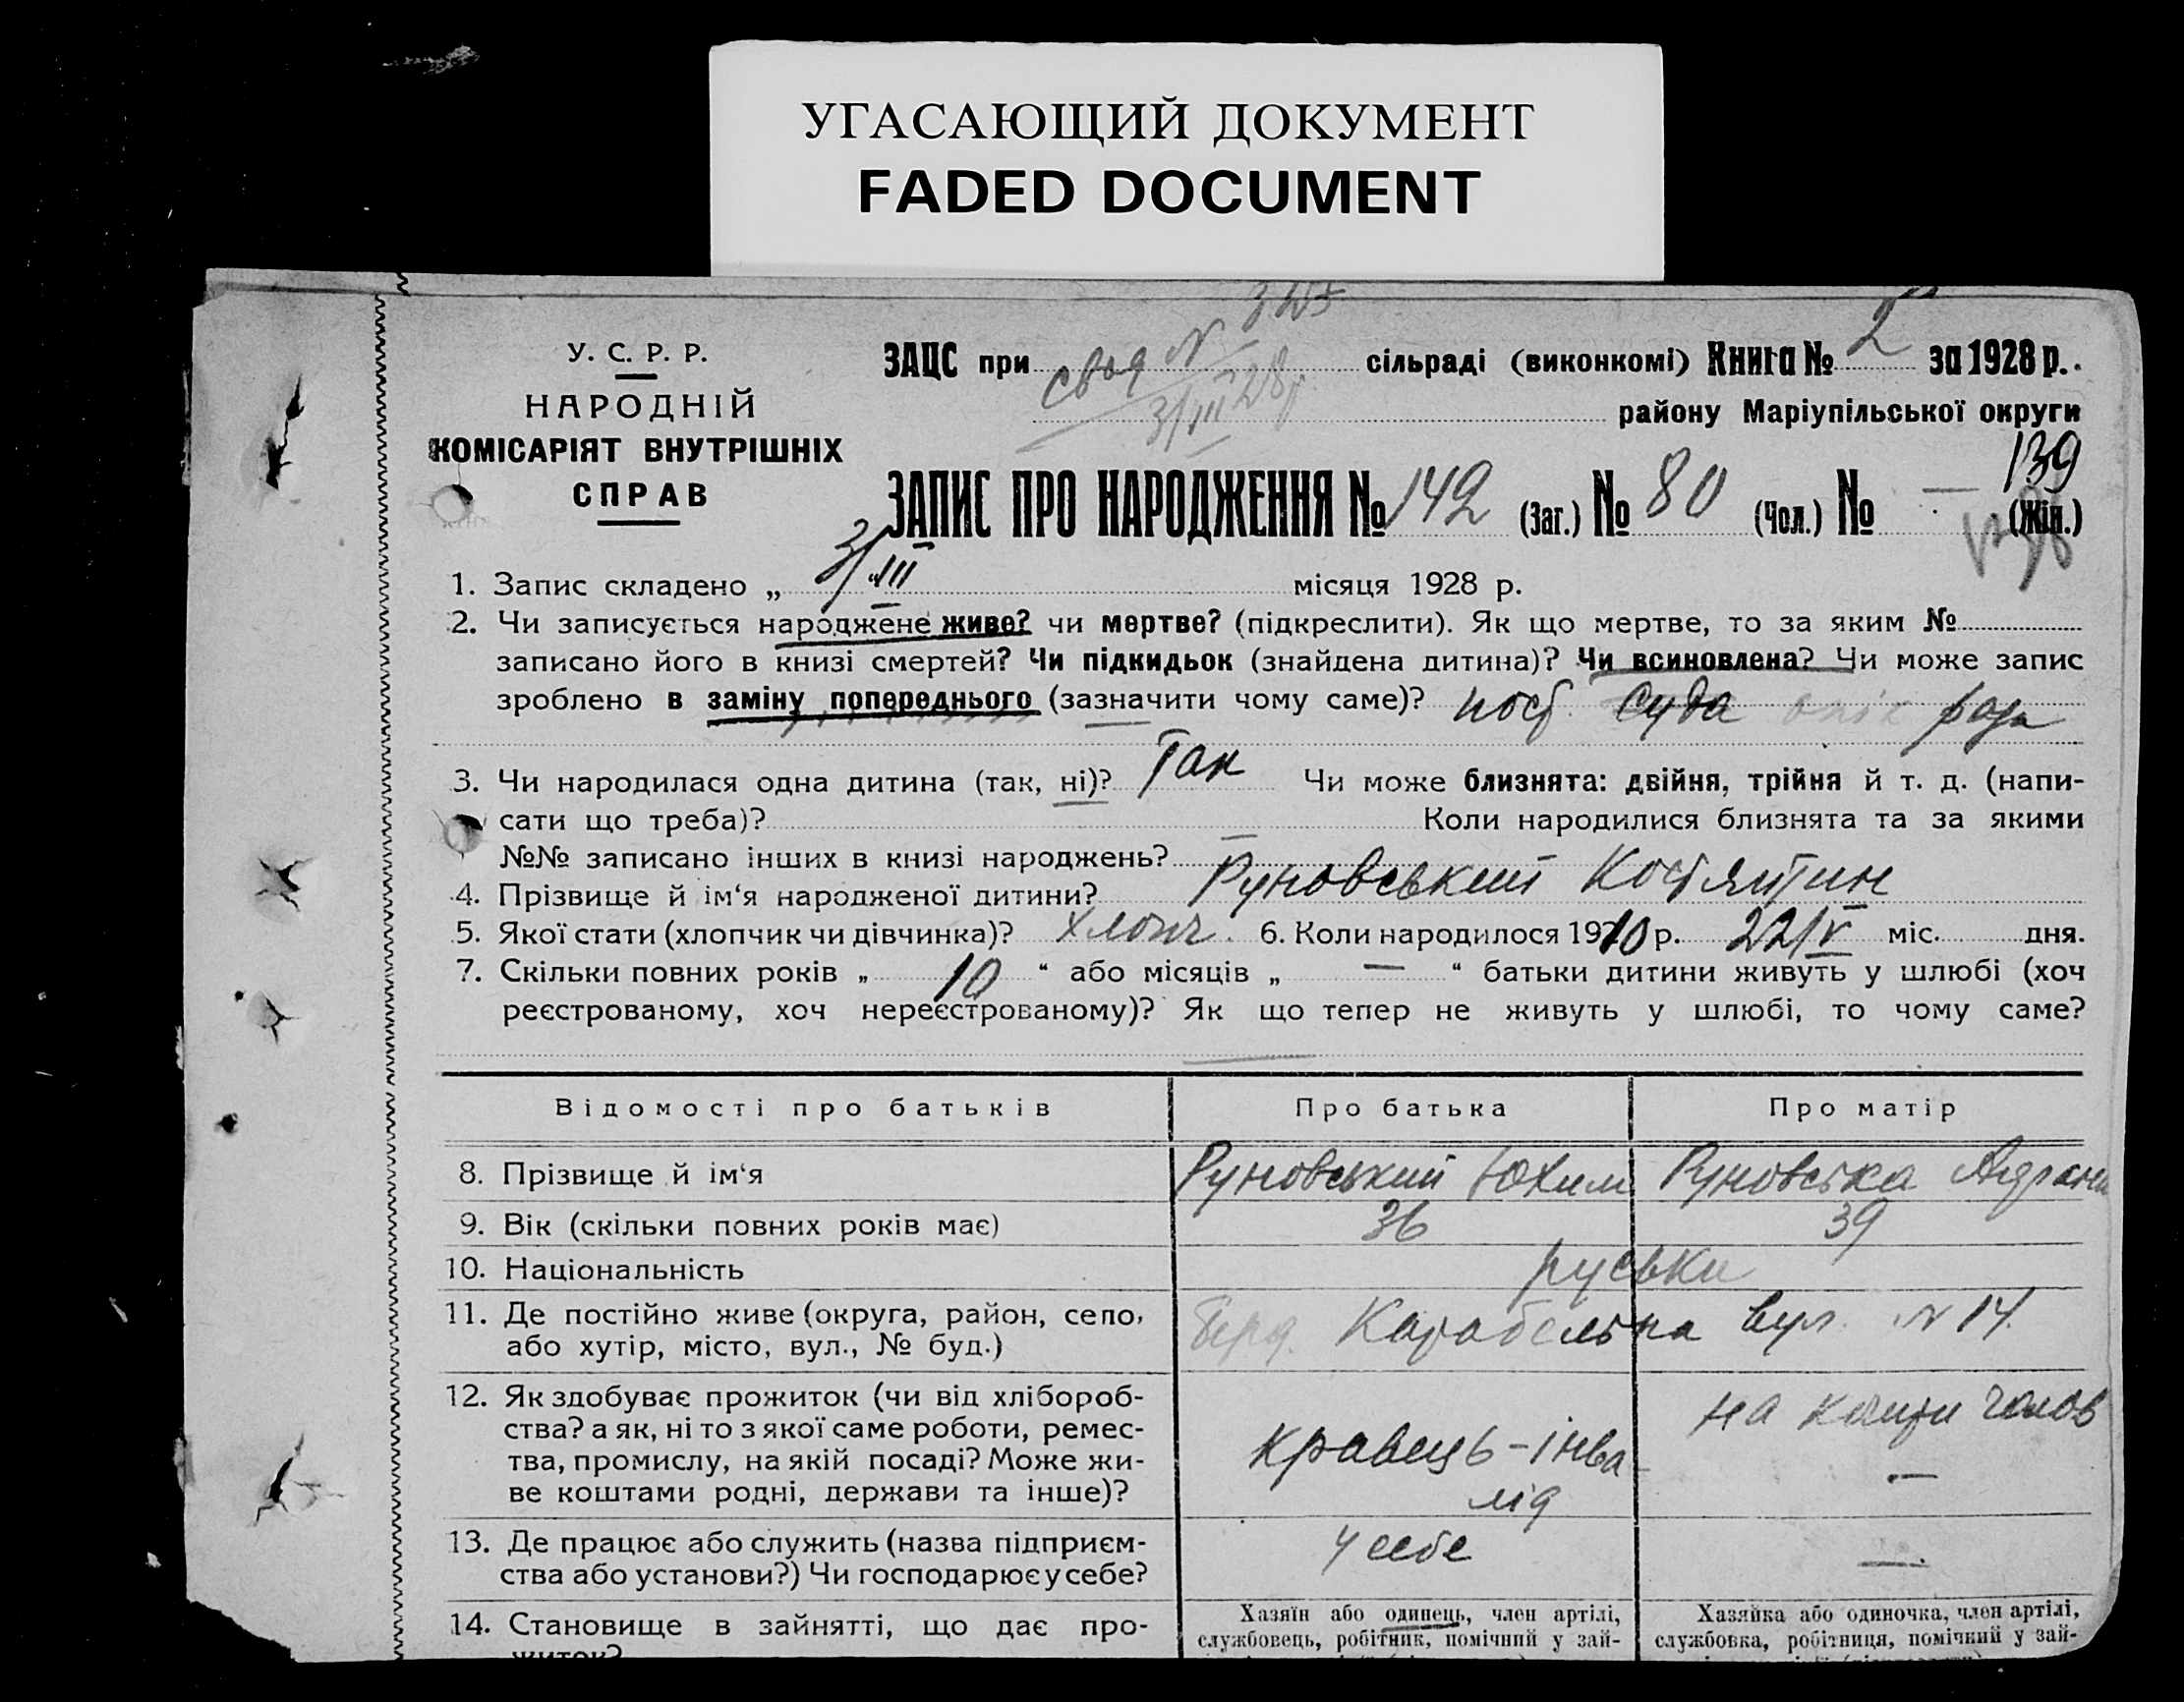 УГАСАЮЩИЙ ДОКУМЕНТ
FADED DOCUMENT
У. С. Р. Р.
НАРОДНІЙ
КОМІСАРІЯТ ВНУТРІШНІХ
СПРАВ
ЗАЦС при свод № сільраді (виконкомі) Книга № 2 за 1928 р.
3/III 28 р
району Маріупільської округи
139
ЗАПИС ПРО НАРОДЖЕННЯ № 142 (Заг.) № 80 (Чол.) № — (Жін.)
1. Запис складено „ 3/III місяця 1928 р.
2. Чи записується народжене живе? чи мертве? (підкреслити). Як що мертве, то за яким №
записано його в книзі смертей? Чи підкидьок (знайдена дитина)? Чи всиновлена? Чи може запис
зроблено в заміну попереднього (зазначити чому саме)? суда
3. Чи народилася одна дитина (так, ні)? Так Чи може близнята: двійня, трійня й т. д. (напи-
сати що треба)? Коли народилися близнята та за якими
№№ записано інших в книзі народжень? —
4. Прізвище й ім‘я народженої дитини? Руновський Костянтин
5. Якої стати (хлопчик чи дівчинка)? хлопч. 6. Коли народилося 1910 р. 22/V міс. дня.
7. Скільки повних років „ 10 “ або місяців „ — “ батьки дитини живуть у шлюбі (хоч
реєстрованому, хоч нереєстрованому)? Як що тепер не живуть у шлюбі, то чому саме?
Відомості про батьків Про батька Про матір
8. Прізвище й ім‘я Руновський Юхим Руновська
9. Вік (скільки повних років має) 36 39
10. Національність руськи
11. Де постійно живе (округа, район, село,
або хутір, місто, вул., № буд.) Карабельна вул. № 14.
12. Як здобуває прожиток (чи від хлібороб-
ства? а як, ні то з якої саме роботи, ремес-
тва, промислу, на якій посаді? Може жи-
ве коштами родні, держави та інше)?
кравець-інва
лід
на кошти голов
—
13. Де працює або служить (назва підприєм-
ства або установи?) Чи господарює у себе?
у себе
—
14. Становище в зайнятті, що дає про-
житок?
Хазяїн або одинець, член артілі,
службовець, робітник, помічний у зай-
Хазяйка або одиночка, член артілі,
службовка, робітниця, помічний у зай-